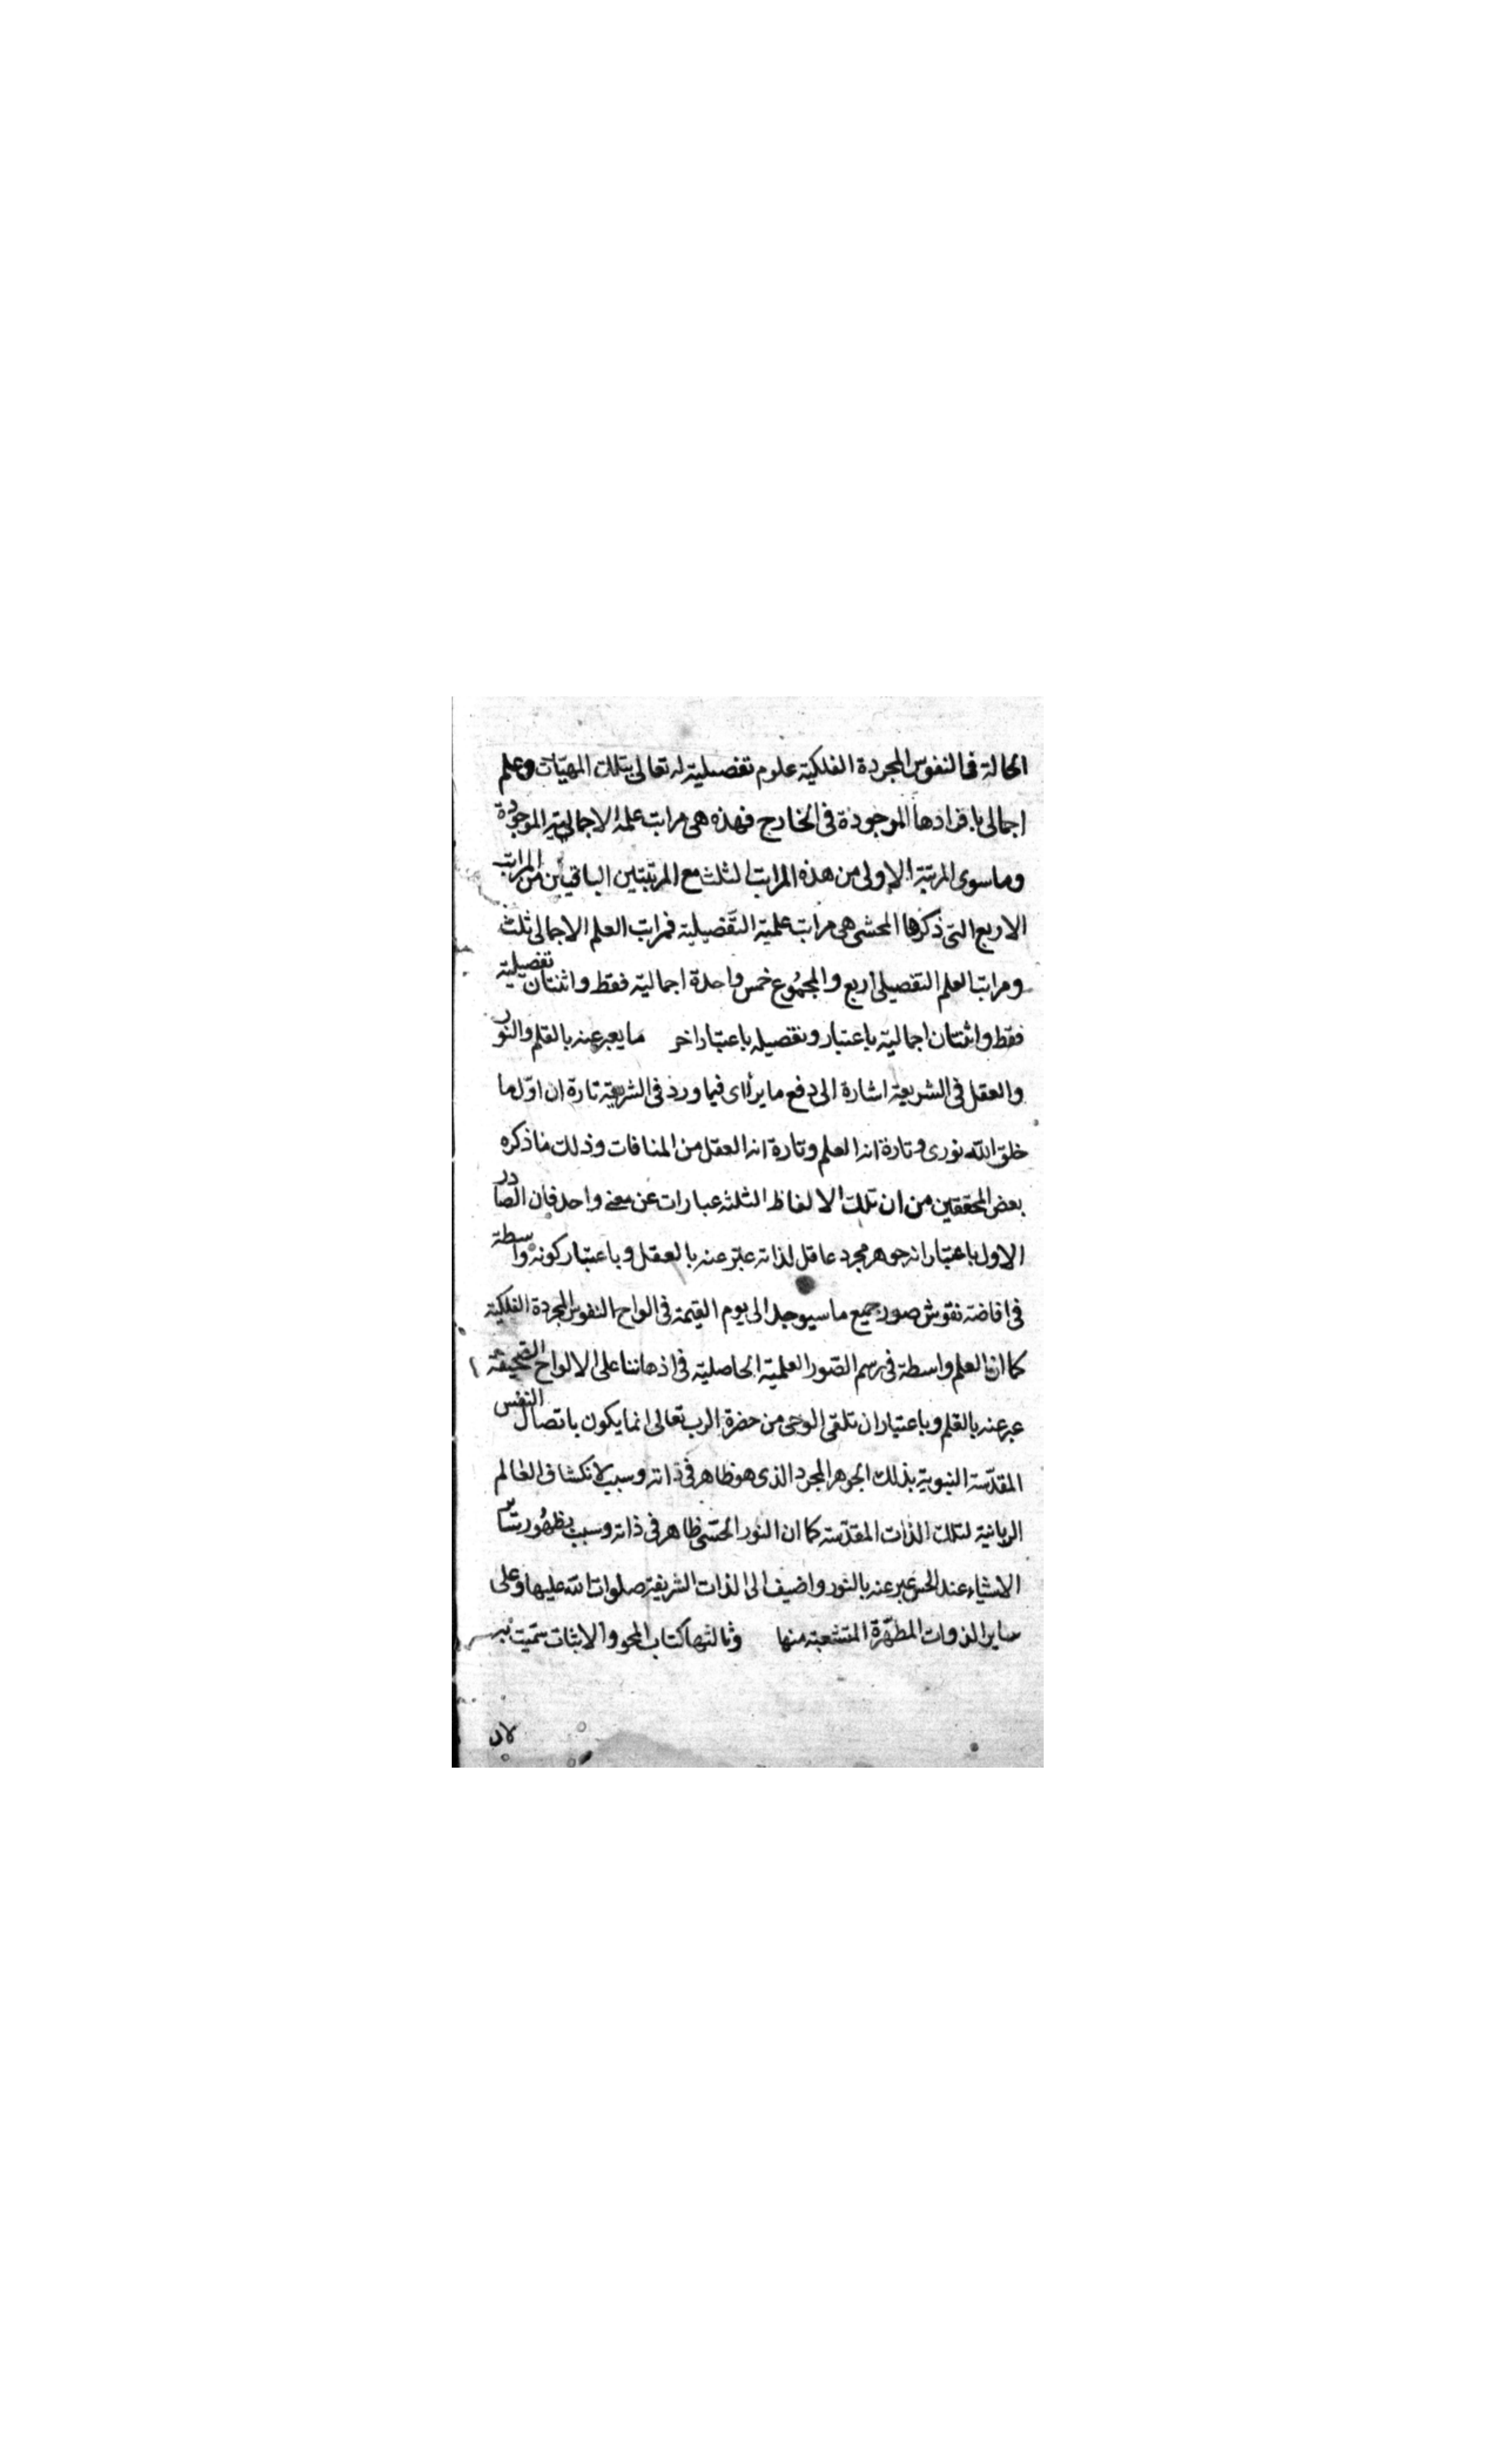 الحالة فى النفوس المجردة الفلكية علوم تفصيلية له تعالى بتلك المهيّات وعلم
اجمالى بافرادها الموجودة فى الخارج فهذه هى مراتب علمه الاجمالية الموجودة
وما سوى المرتبة الاولى من هذه المراتب الثلث مع المرتبتين الباقيتين من المراتب
الاربع التى ذكرها المحشى هى مراتب علمية التفصيلية فمراتب العلم الاجمالى ثلث
ومراتب العلم التفصيلى اربع والمجموع خمس واحدة اجمالية فقط واثنتان تفصيلية
فقط واثنتان اجمالية باعتبار وتفصيله باعتبار اخر ما يعبر عنه بالقلم والنور
والعقل فى الشريعة اشارة الى دفع ما يراأى فيما ورد فى الشريعة تارة ان اوّل ما
خلق الله نورى وتارة انه العلم وتارة انه العقل من المنافات وذلك ما ذكره
بعض المحققين من ان تلك الالفاظ الثلثه عبارات عن معنى واحد فان الصادر
الاول باعتبار انه جوهر مجرد عاقل لذاته عبّر عنه بالعقل وباعتبار كونه واسطة
فى افاضة نقوش صور جميع ما سيوجد الى يوم القيمة فى الواح النفوس المجردة الفلكية
كما ان العلم واسطة فى رسم الصّور العلمية الحاصلية فى اذهاننا على الالواح الصحيفة
عبر عنه بالقلم وباعتبار ان تلقى الوحى من حضرة الرب تعالى انما يكون باتصال النفس
المقدّسة النبوية بذلك الجوهر المجرد الذى هو ظاهر فى ذاته وسبب لانكشاف العالم
الربانية لتلك الذات المقدّسة كما ان النور الحسّى ظاهر فى ذاته وسبب بظهور ساير
الاشياء عند الحس عبر عنه بالنور واضيف الى الذات الشريفة صلوات الله عليها وعلى
ساير الذوات المطهّرة المتشعبة منها وثالثها كتاب المحو والاثبات سمّيت به
لان